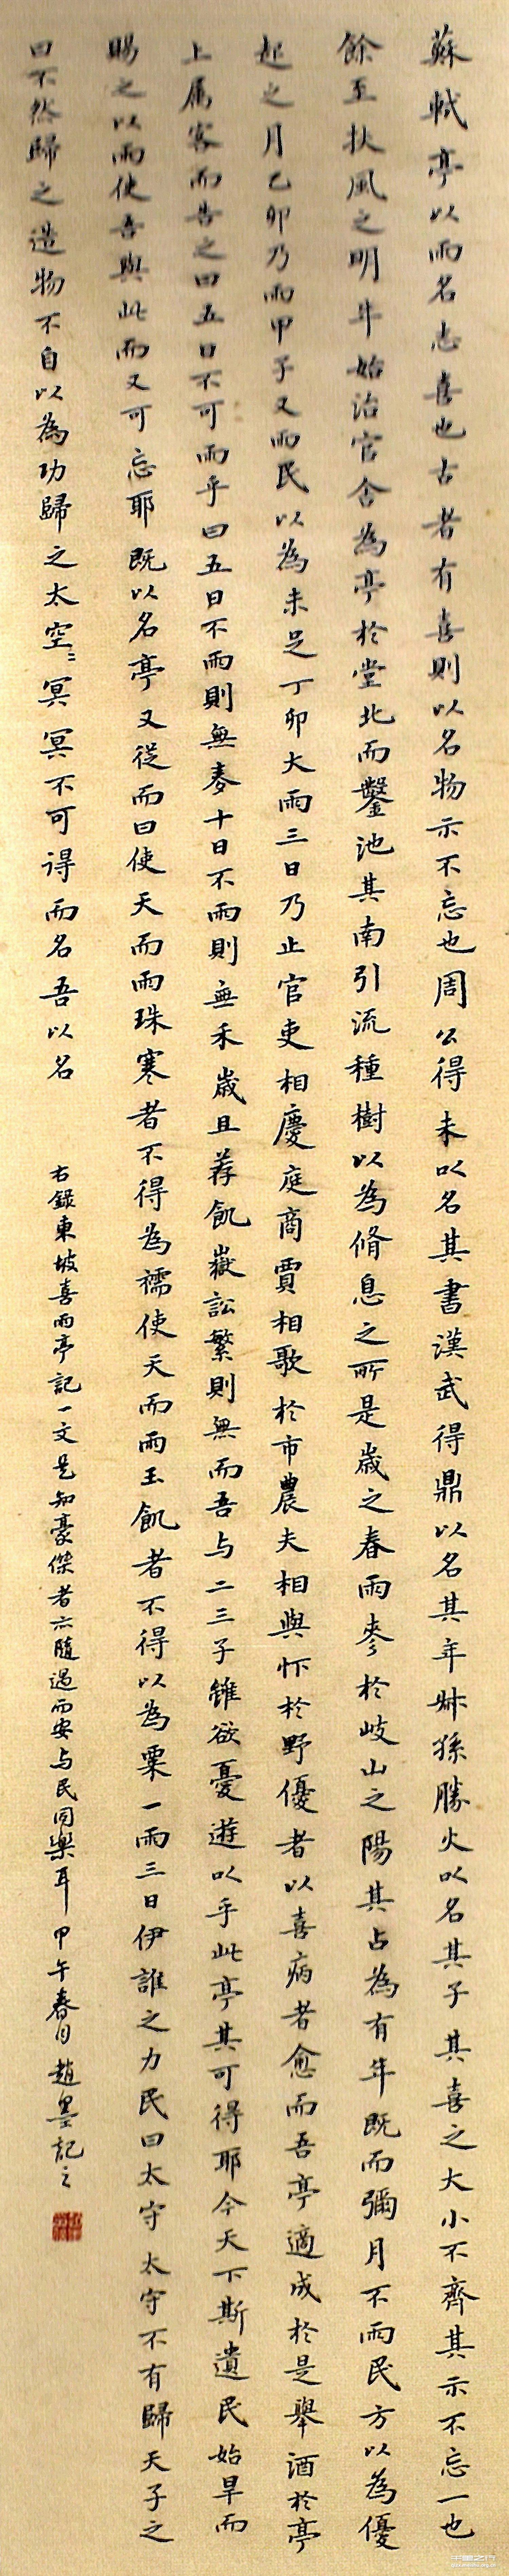 蘇軾亭以雨名志喜也古者有喜則以名物示不忘也周公得禾以名其書漢武得鼎以名其年叔孫勝火以名其子其喜之大小不齊其示不忘一也
餘至扶風之明年始治官舍為亭於堂北而鑿池其南引流種樹以為脩息之所是歲之春雨麥於岐山之陽其占為有年既而彌月不雨民方以為優
起之月乙卯乃雨甲子又雨民以為未足丁卯大雨三日乃止官吏相慶庭商賈相歌於市農夫相與忭於野優者以喜病者愈而吾亭適成於是舉酒於亭
上属客而告之曰五日不可雨乎曰五日不雨則無麥十日不雨則無禾歲且荐飢嶽訟繁則無而吾与二三子雖欲憂遊以乎此亭其可得耶今天下斯遺民始旱而
賜之以雨使吾與此而又可忘耶既以名亭又從而曰使天而雨珠寒者不得為襦使天而雨玉飢者不得以為粟一雨三日伊誰之力民曰太守太守不有歸天子之
曰不然歸之造物不自以為功歸之太空〻冥冥不可得而名吾以名
右錄東坡喜雨亭記一文是知豪傑者亦隨遇而安与民同樂耳甲午春月趙墨記之